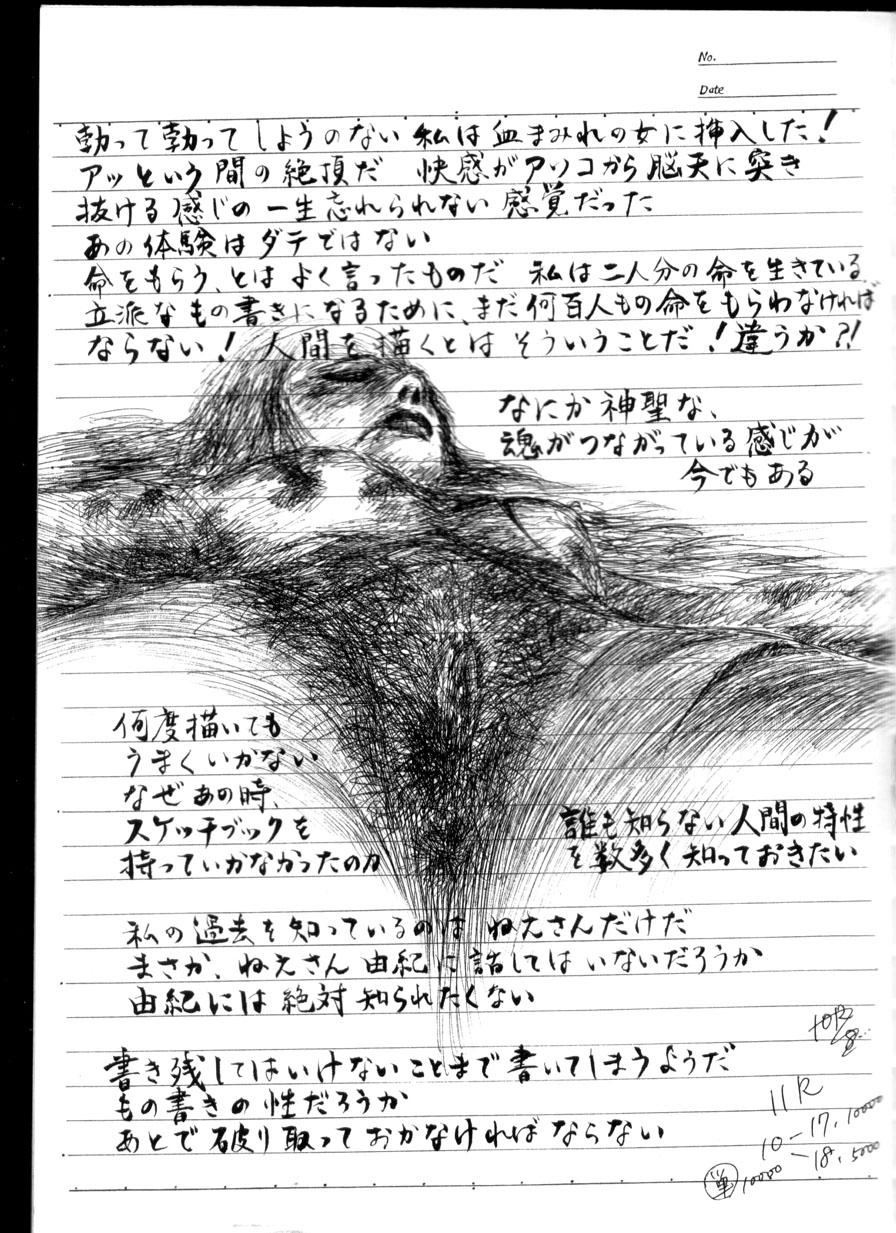 No.
Date
勃って勃ってしようのない 私は血まみれの女に挿入した!
アッという間の絶頂だ 快感がアソコから脳天に突き
抜ける感じの一生忘れられない感覚だった
あの体験はダテではない
命をもらう、とはよく言ったものだ 私は二人分の命を生きている
立派なもの書きになるために、まだ何百人もの命をもらわなければ
ならない! 人間を描くとはそういうことだ!違うか?!
なにか神聖な、
魂がつながっている感じが
今でもある
何度描いても
うまくいかない
なぜあの時、
スケッチブックを
持っていかなかったのか
誰も知らない人間の特性
を数多く知っておきたい
私の過去を知っているのはねえさんだけだ
まさか、ねえさん由紀に話してはいないだろうか
由紀には絶対知られたくない
書き残してはいけないことまで書いてしまうようだ
もの書きの性だろうか
あとで破り取っておかなければならない
11R
10-17. 10000
-18. 5000
単 10000